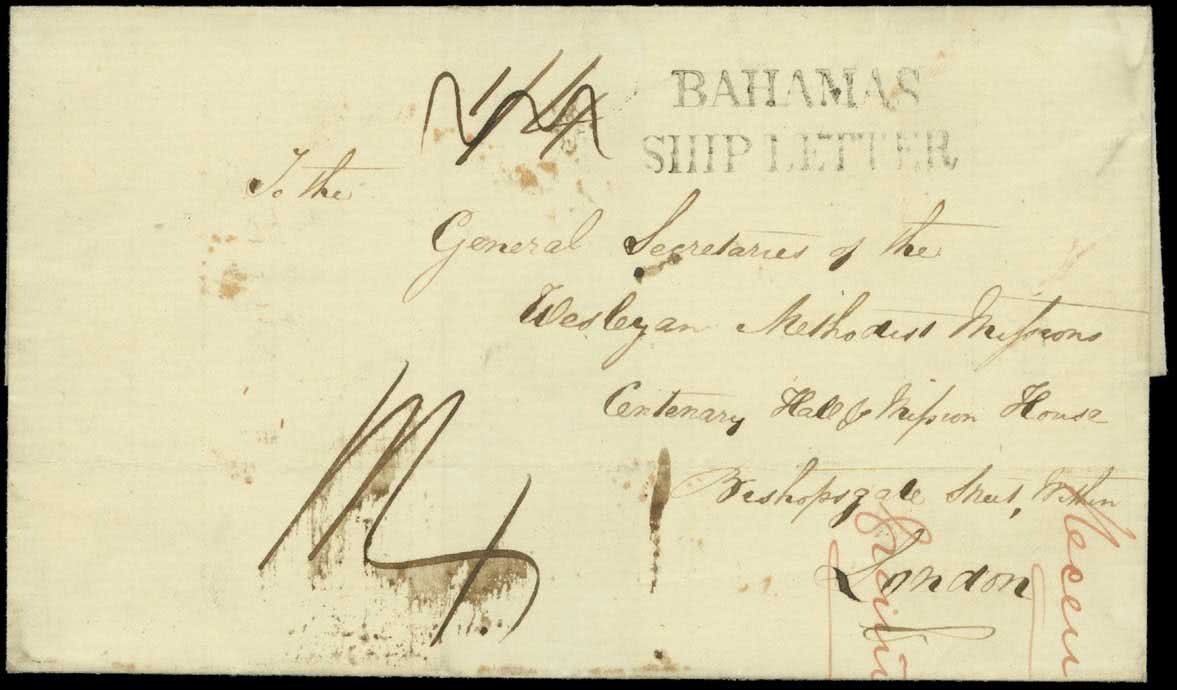 BAHAMAS
SHIP LETTER
To the
General Secretaries of the
Wesleyan Methodist Missions
Centenary Hall & Mission House
Bishopsgate Street, Within
London